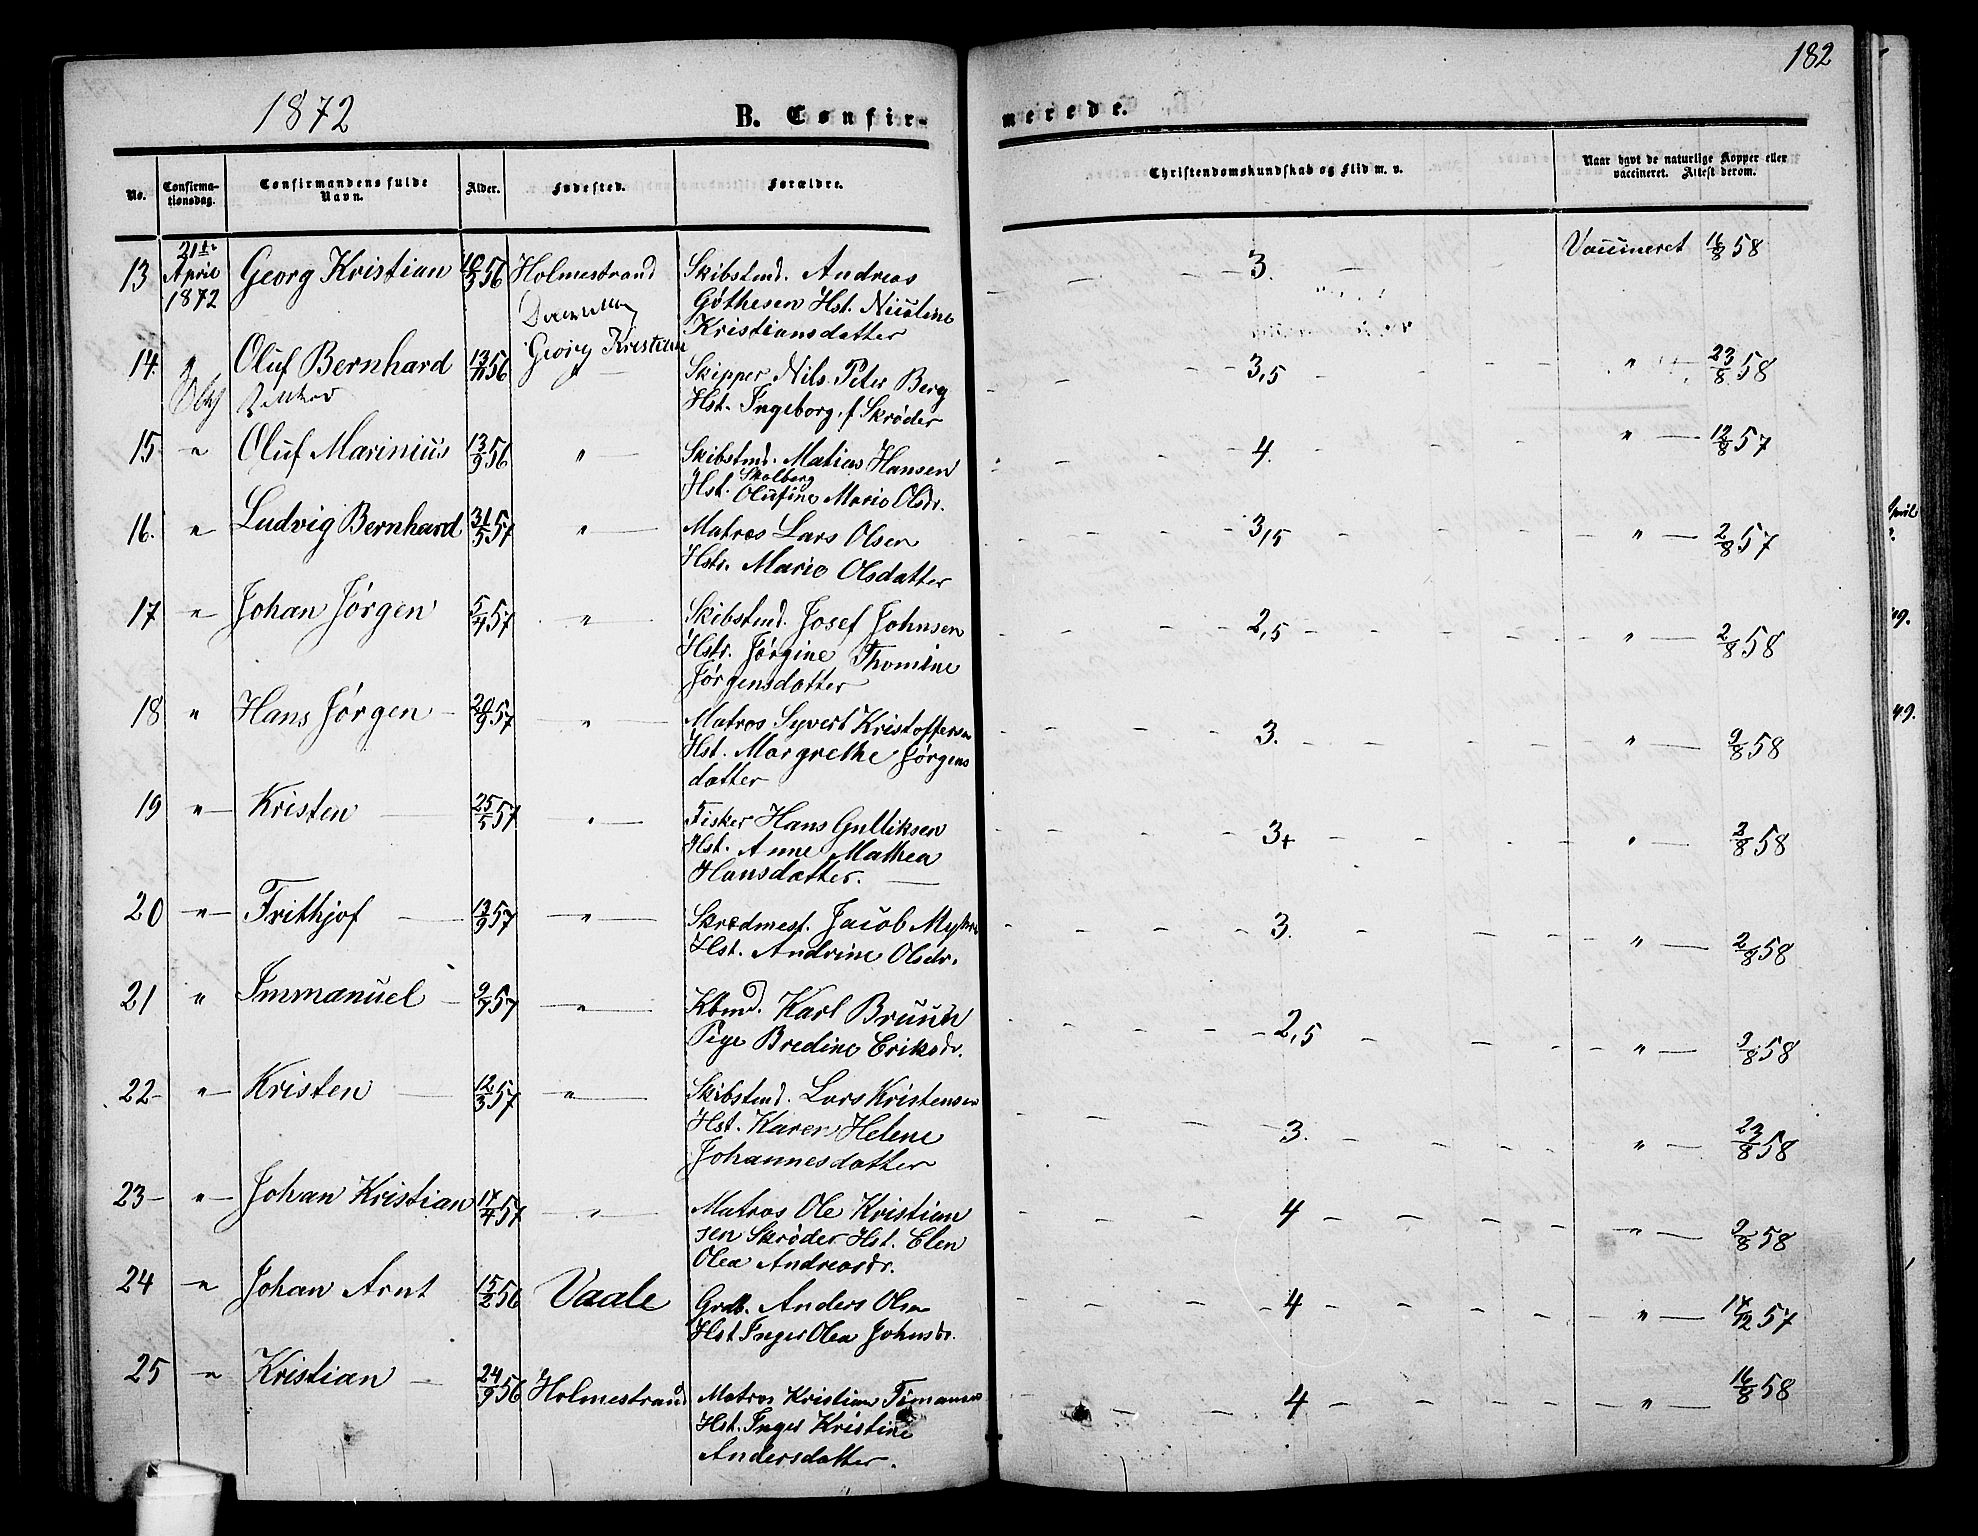 182
1872
B. Confir-
merede.
No.
Confirma-
tionsdag.
Confirmandens fulde
Navn.
Alder.
Fødested.
Forældre.
Christendomskundskab og Flid m. v.
Naar havt de naturlige Kopper eller
vaccineret. Attest derom.
13 21de April 1872 Georg Kristian 56 Holmestrand Skibstmd. Andreas
Göthesen Hst. Nicoline
Kristiansdatter
3. Vaccineret 16/8 58
Georg Kristian
14 " Oluf Bernhard 13/11 56 " Skipper Nils Peter Berg
Hst. Ingeborg f. Skrøder
3,5 " 23/8 58
15 " Oluf Marinius 13/9 56 " Skibstmd. Matias Hansen
Skolberg
Hst. Olufine Marie Olsdr.
4. " 12/8 57
16. " Ludvig Bernhard 31/5 57 " Matros Lars Olsen
Hstr. Marie Olsdatter
3,5 " 2/8 57
17 " Johan Jørgen 5/4 57 " Skibstmd. Josef Johnsen
Hstr. Jørgine Thomine
Jørgensdatter
2,5 " 2/8 58
18 " Hans Jørgen 20/9 57 " Matros Syvert Kristoffersen
Hst. Margrethe Jørgens
datter
3. " 9/8 58
19 " Kristen 25/5 57 " Fisker Hans Gulliksen
Hst. Anne Mathea
Hansdatter.
3+ " 2/8 58
20 " Frithjof 13/9 57 " Skrædmest. Jacob
Hst. Andrine Olsdr.
3. " 2/8 58
21 " Immanuel 9/7 57 " Kbmd. Karl Bruun
Pige Bredine Eriksdr.
2,5 " 2/8 58
22 " Kristen 12/3 57 " Skibstmd. Lars Kristensen
Hst. Karen Helene
Johannesdatter
3. " 23/8 58
23 " Johan Kristian 14/4 57 " Matros Ole Kristian
sen Skrøder Hst. Elen
Olea Andreasdr.
4 " 2/8 58
24 " Johan Arnt 15/2 56 Vaale Grdb. Anders Olsen
Hst. Inger Olea Johnsdr.
4 " 14/12 57
25 " Kristian 24/9 56 Holmestrand Matros Kristian Timansen
Hst. Inger Kristine
Andersdatter.
4 " 16/8 58